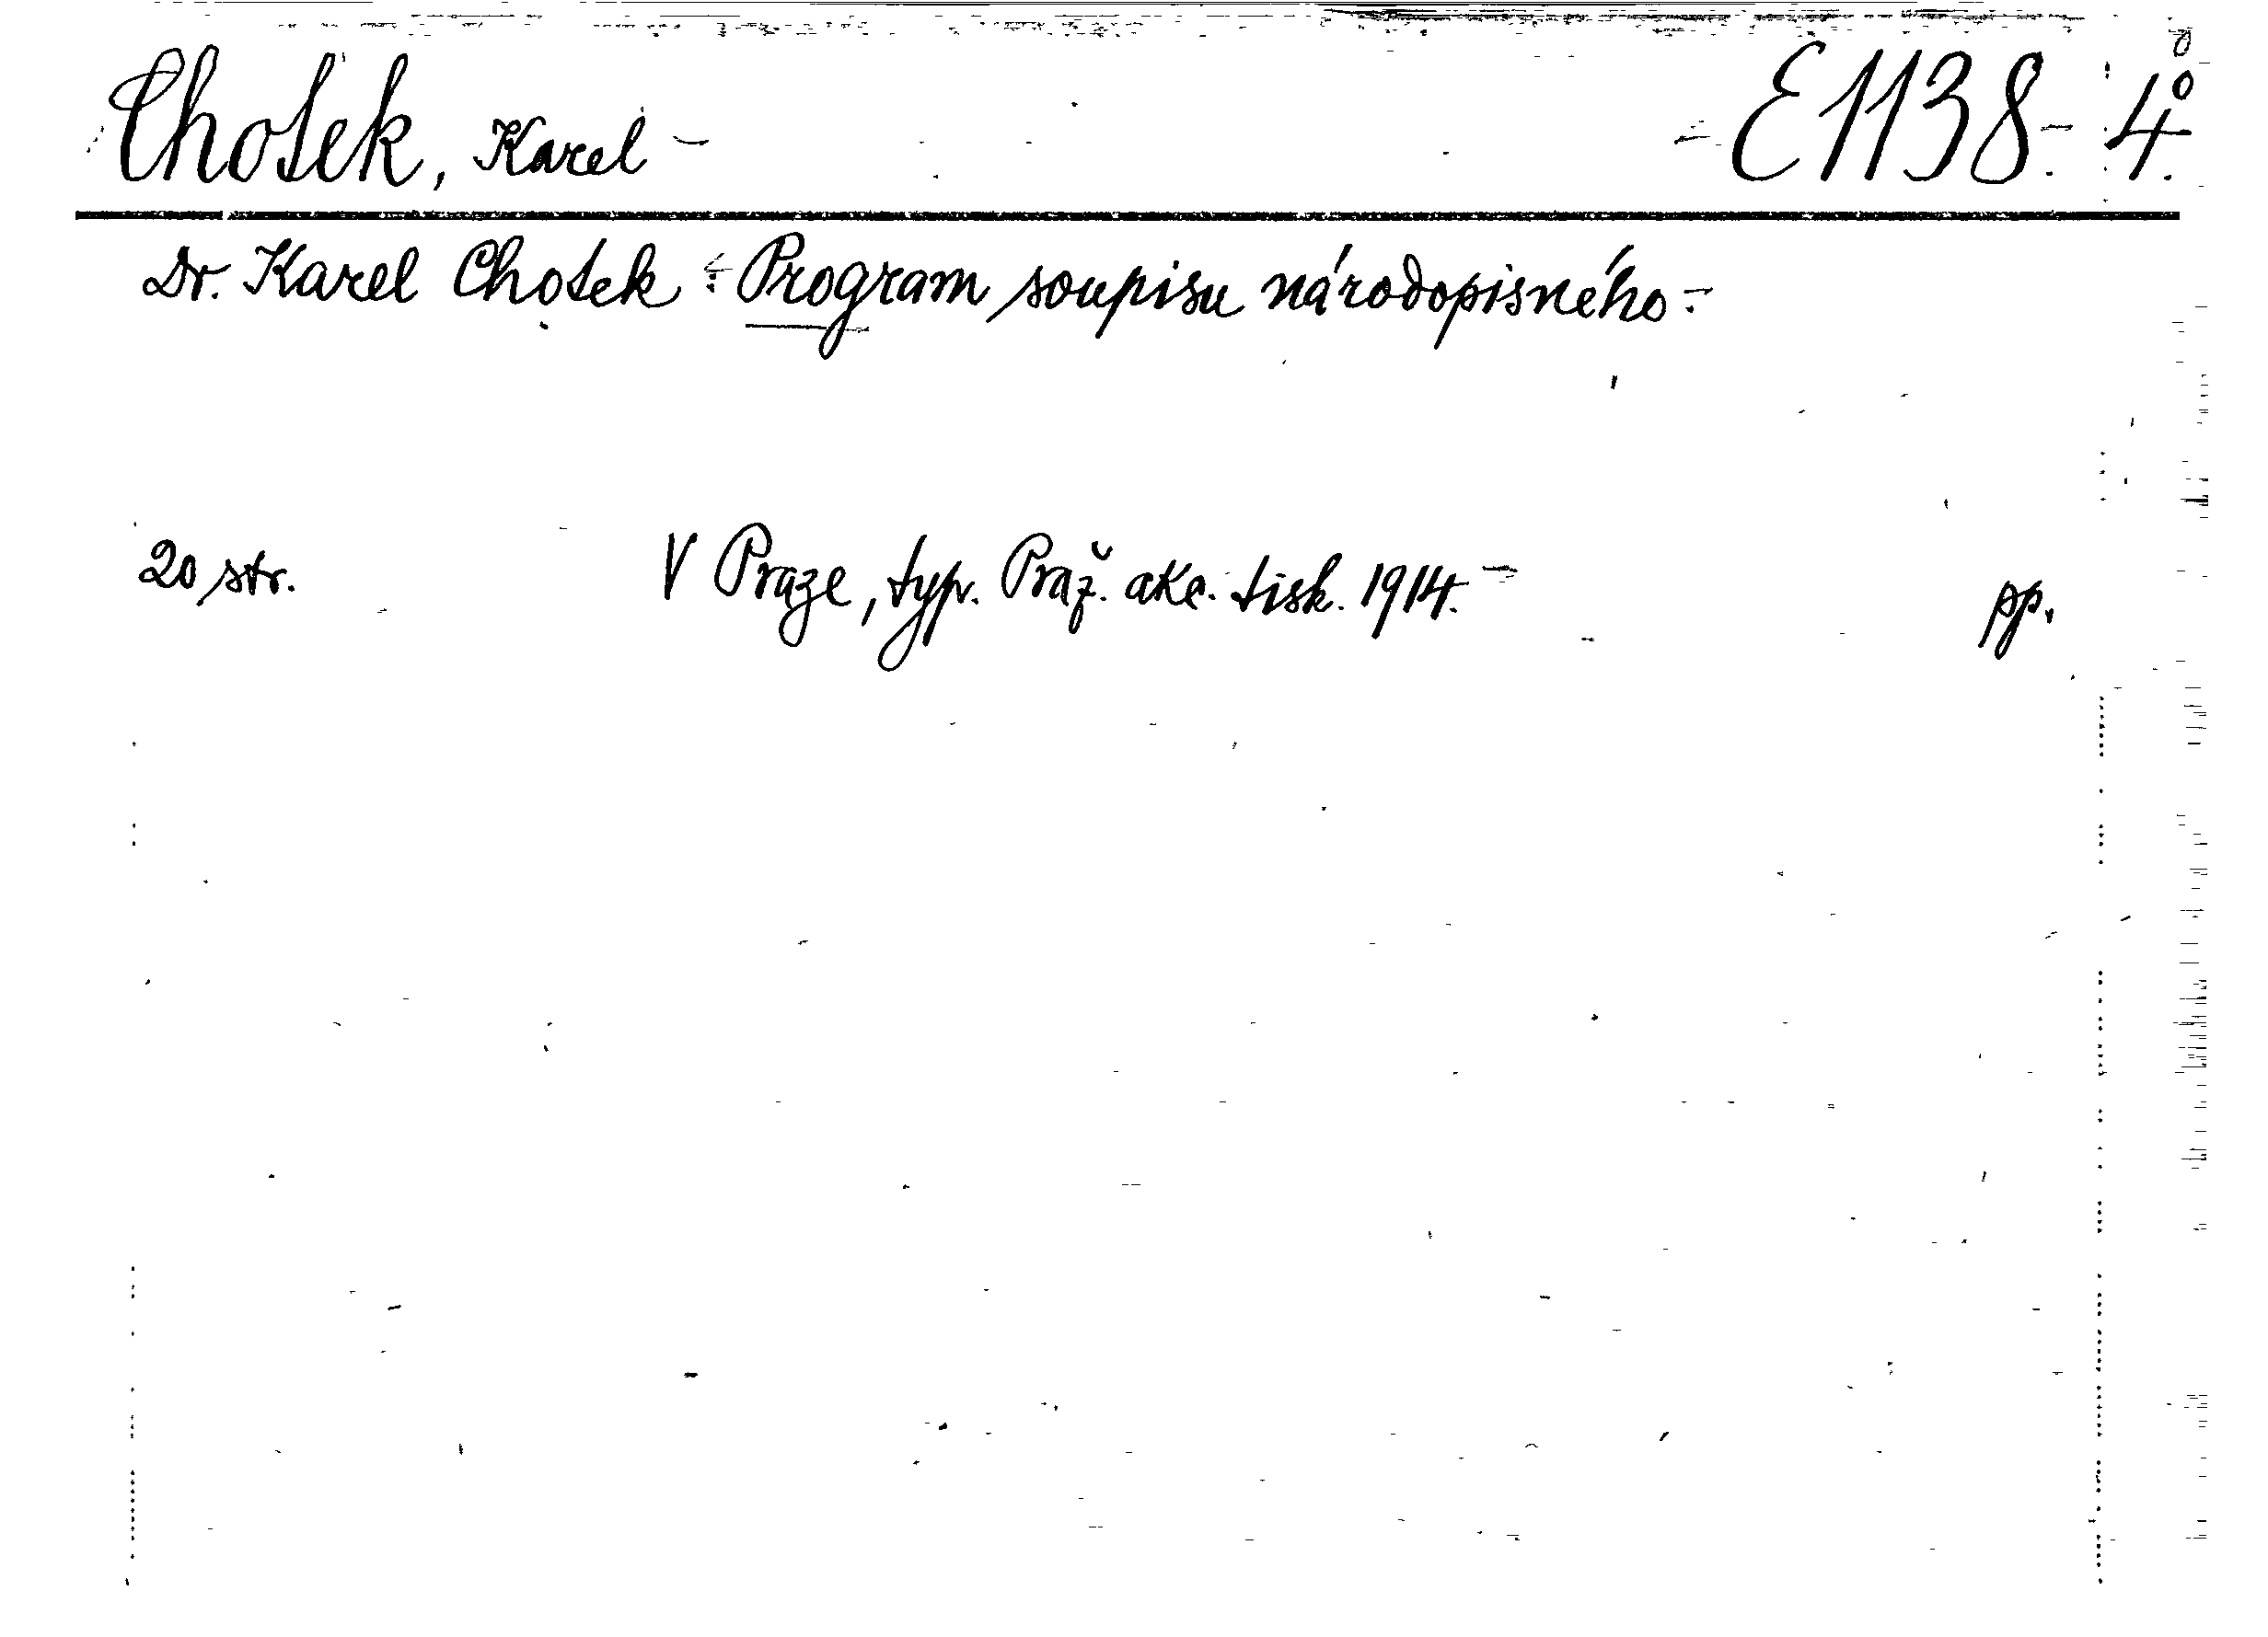 Chotek, Karel - E1138.- 4º.
Dr. Karel Chotek : Program soupisu národopisného.-
20 str. V Praze, typ. Praž. akc. tisk. 1914.- pp.